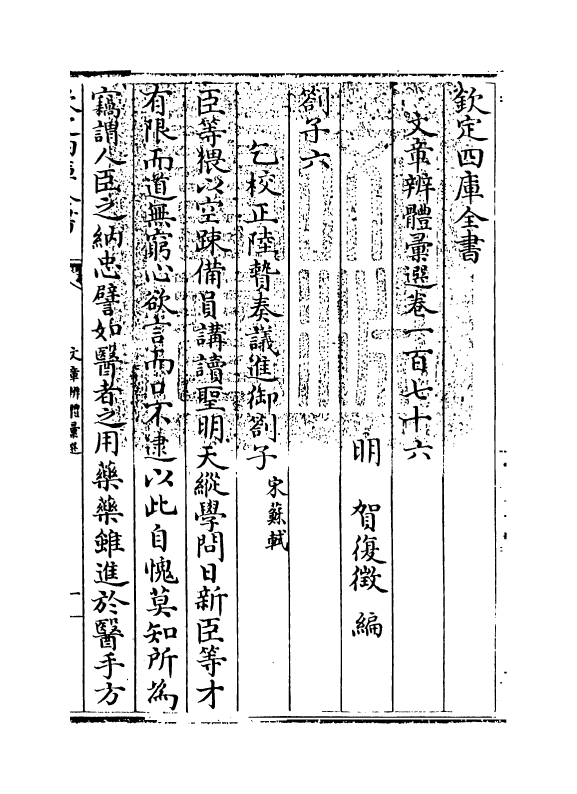 欽定四庫全書
文章辨體彙選卷一百七十六
明 賀復徵 編
劄子六
乞校正陸贄奏議進御劄子 宋蘇軾
臣等猥以空踈備員講讀聖明天縱學問日新臣等才
有限而道無窮心欲言而口不逮以此自愧莫知所為
竊謂人臣之納忠譬如醫者之用藥藥雖進於醫手方
文章辨體彙選
一